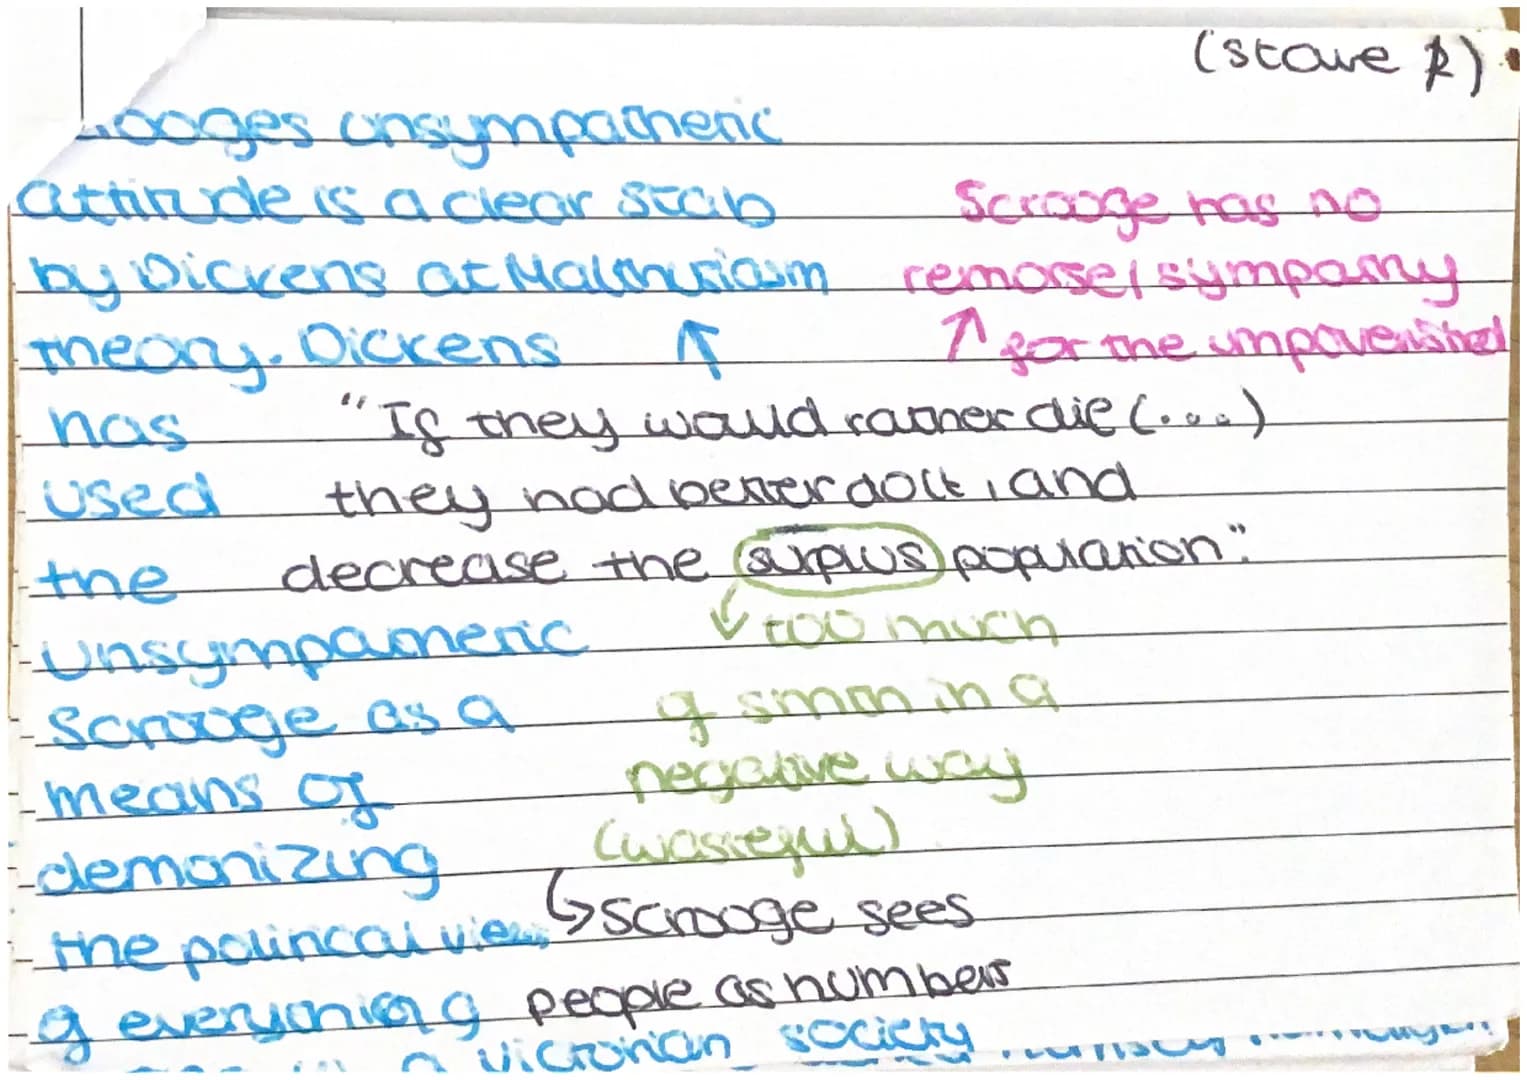 (stave
ooges unsympathetic
attitude is a clear stab
by Dickens at Malthusiasm
theory. Dickens
has
used
the
unsympathetic
Scrooge as a
means of
demonizing
the political view
of
Scrooge has no
remorse/sympathy
for the impoverished
"If they would rather die (...)
they had better do it, and
decrease the surplus population".
too much
of smth in a
negative way
(wasteful)
Scrooge sees
people as numbers
a victorian society